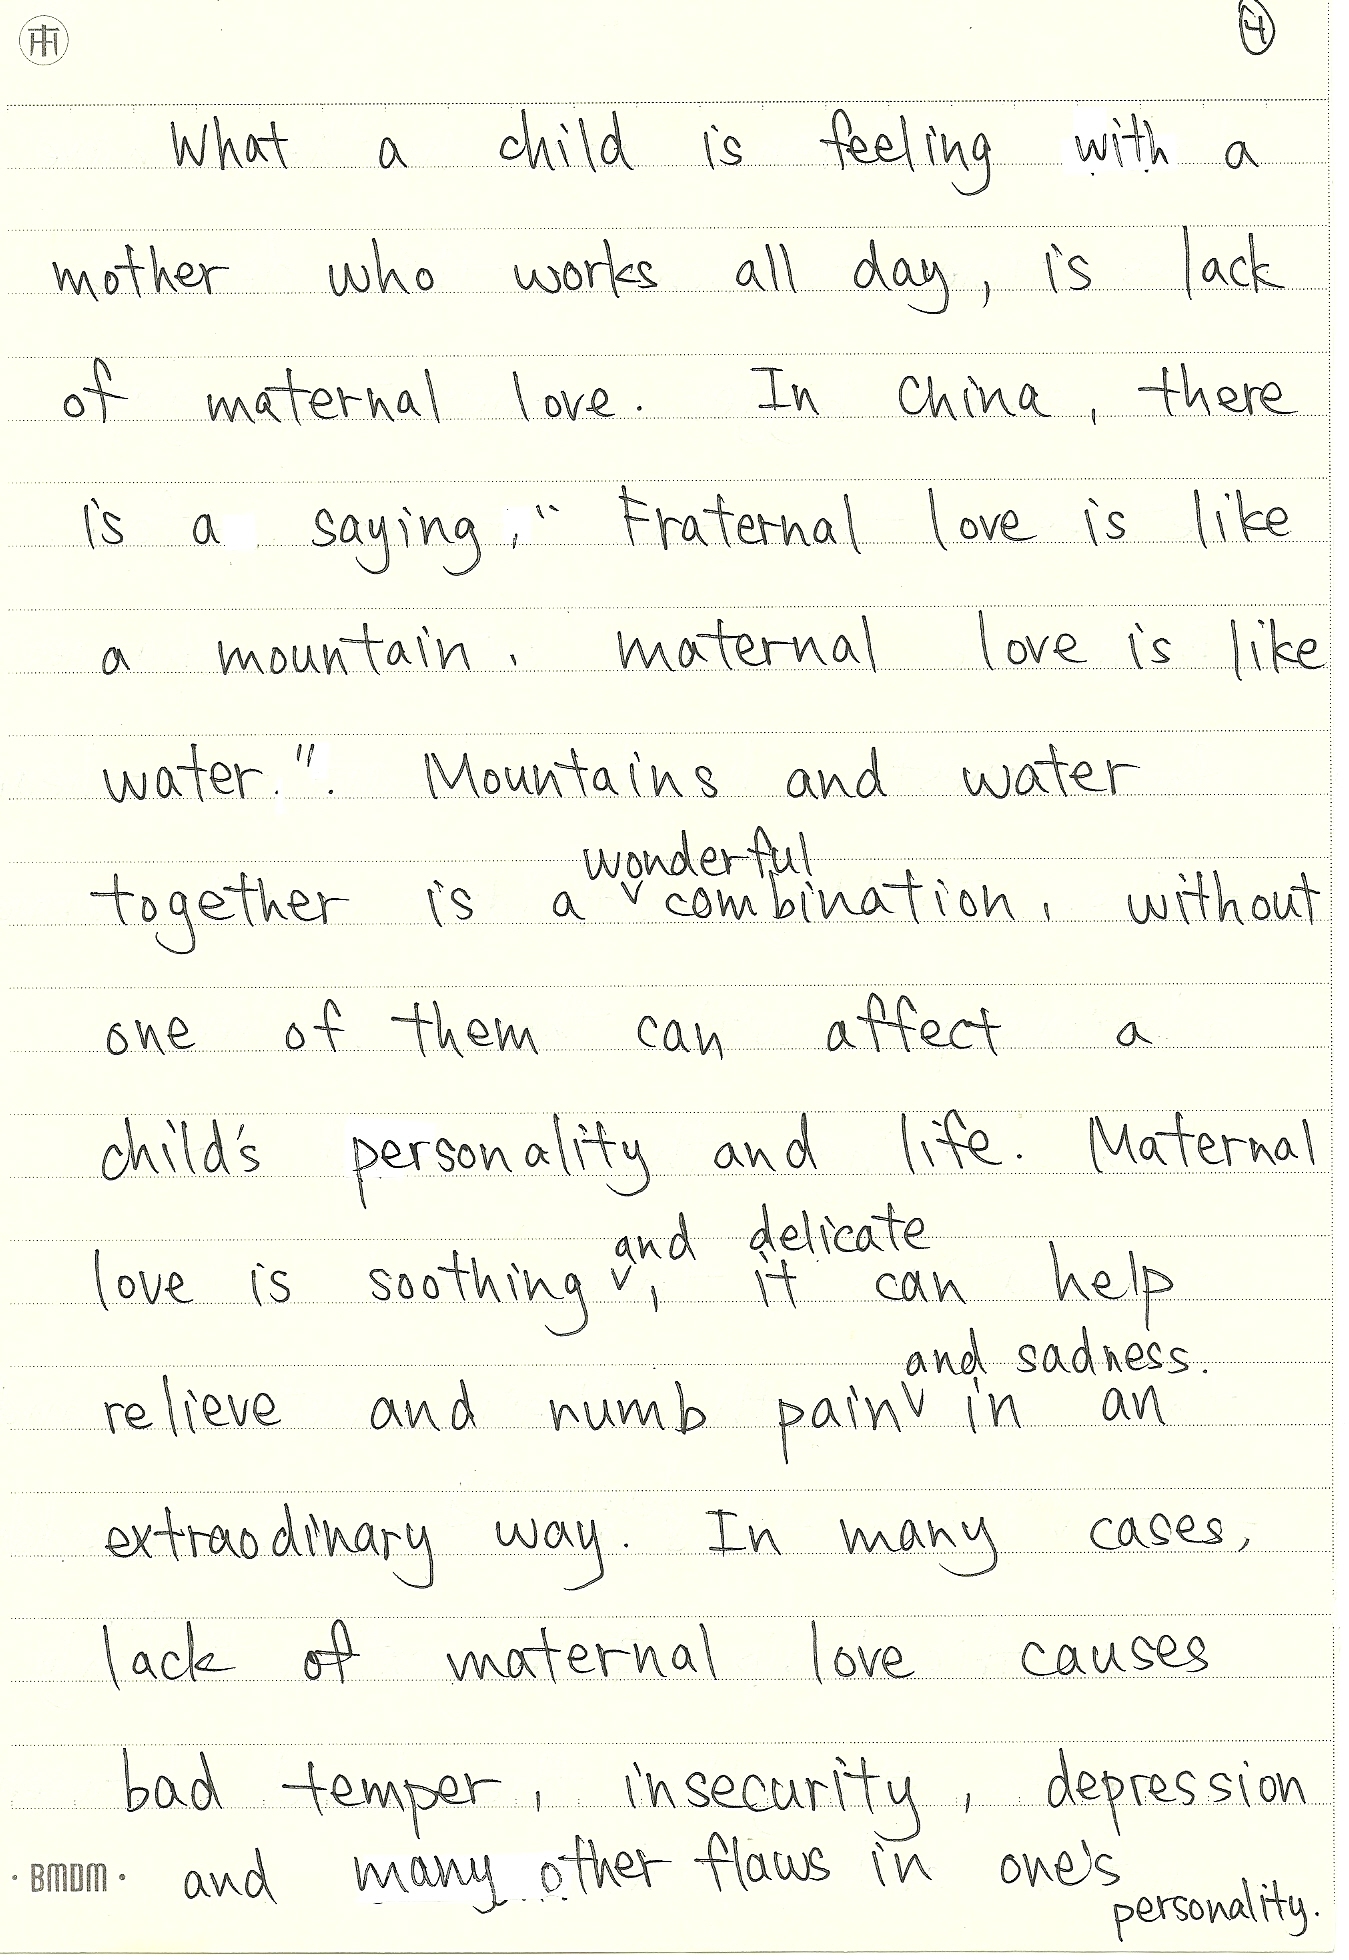 4
What a child is feeling with a
mother who works all day, is lack
of maternal love. In China, there
is a saying, "Fraternal love is like
a mountain, maternal love is like
water.". Mountains and water
wonderful
together is a ˅ combination, without
one of them can affect a
child's personality and life. Maternal
and delicate
love is soothing ˅, it can help
and sadness.
relieve and numb pain ˅ in an
extraodinary way. In many cases,
lack of maternal love causes
bad temper, insecurity, depression
· BMDM · and many other flaws in one's
personality.